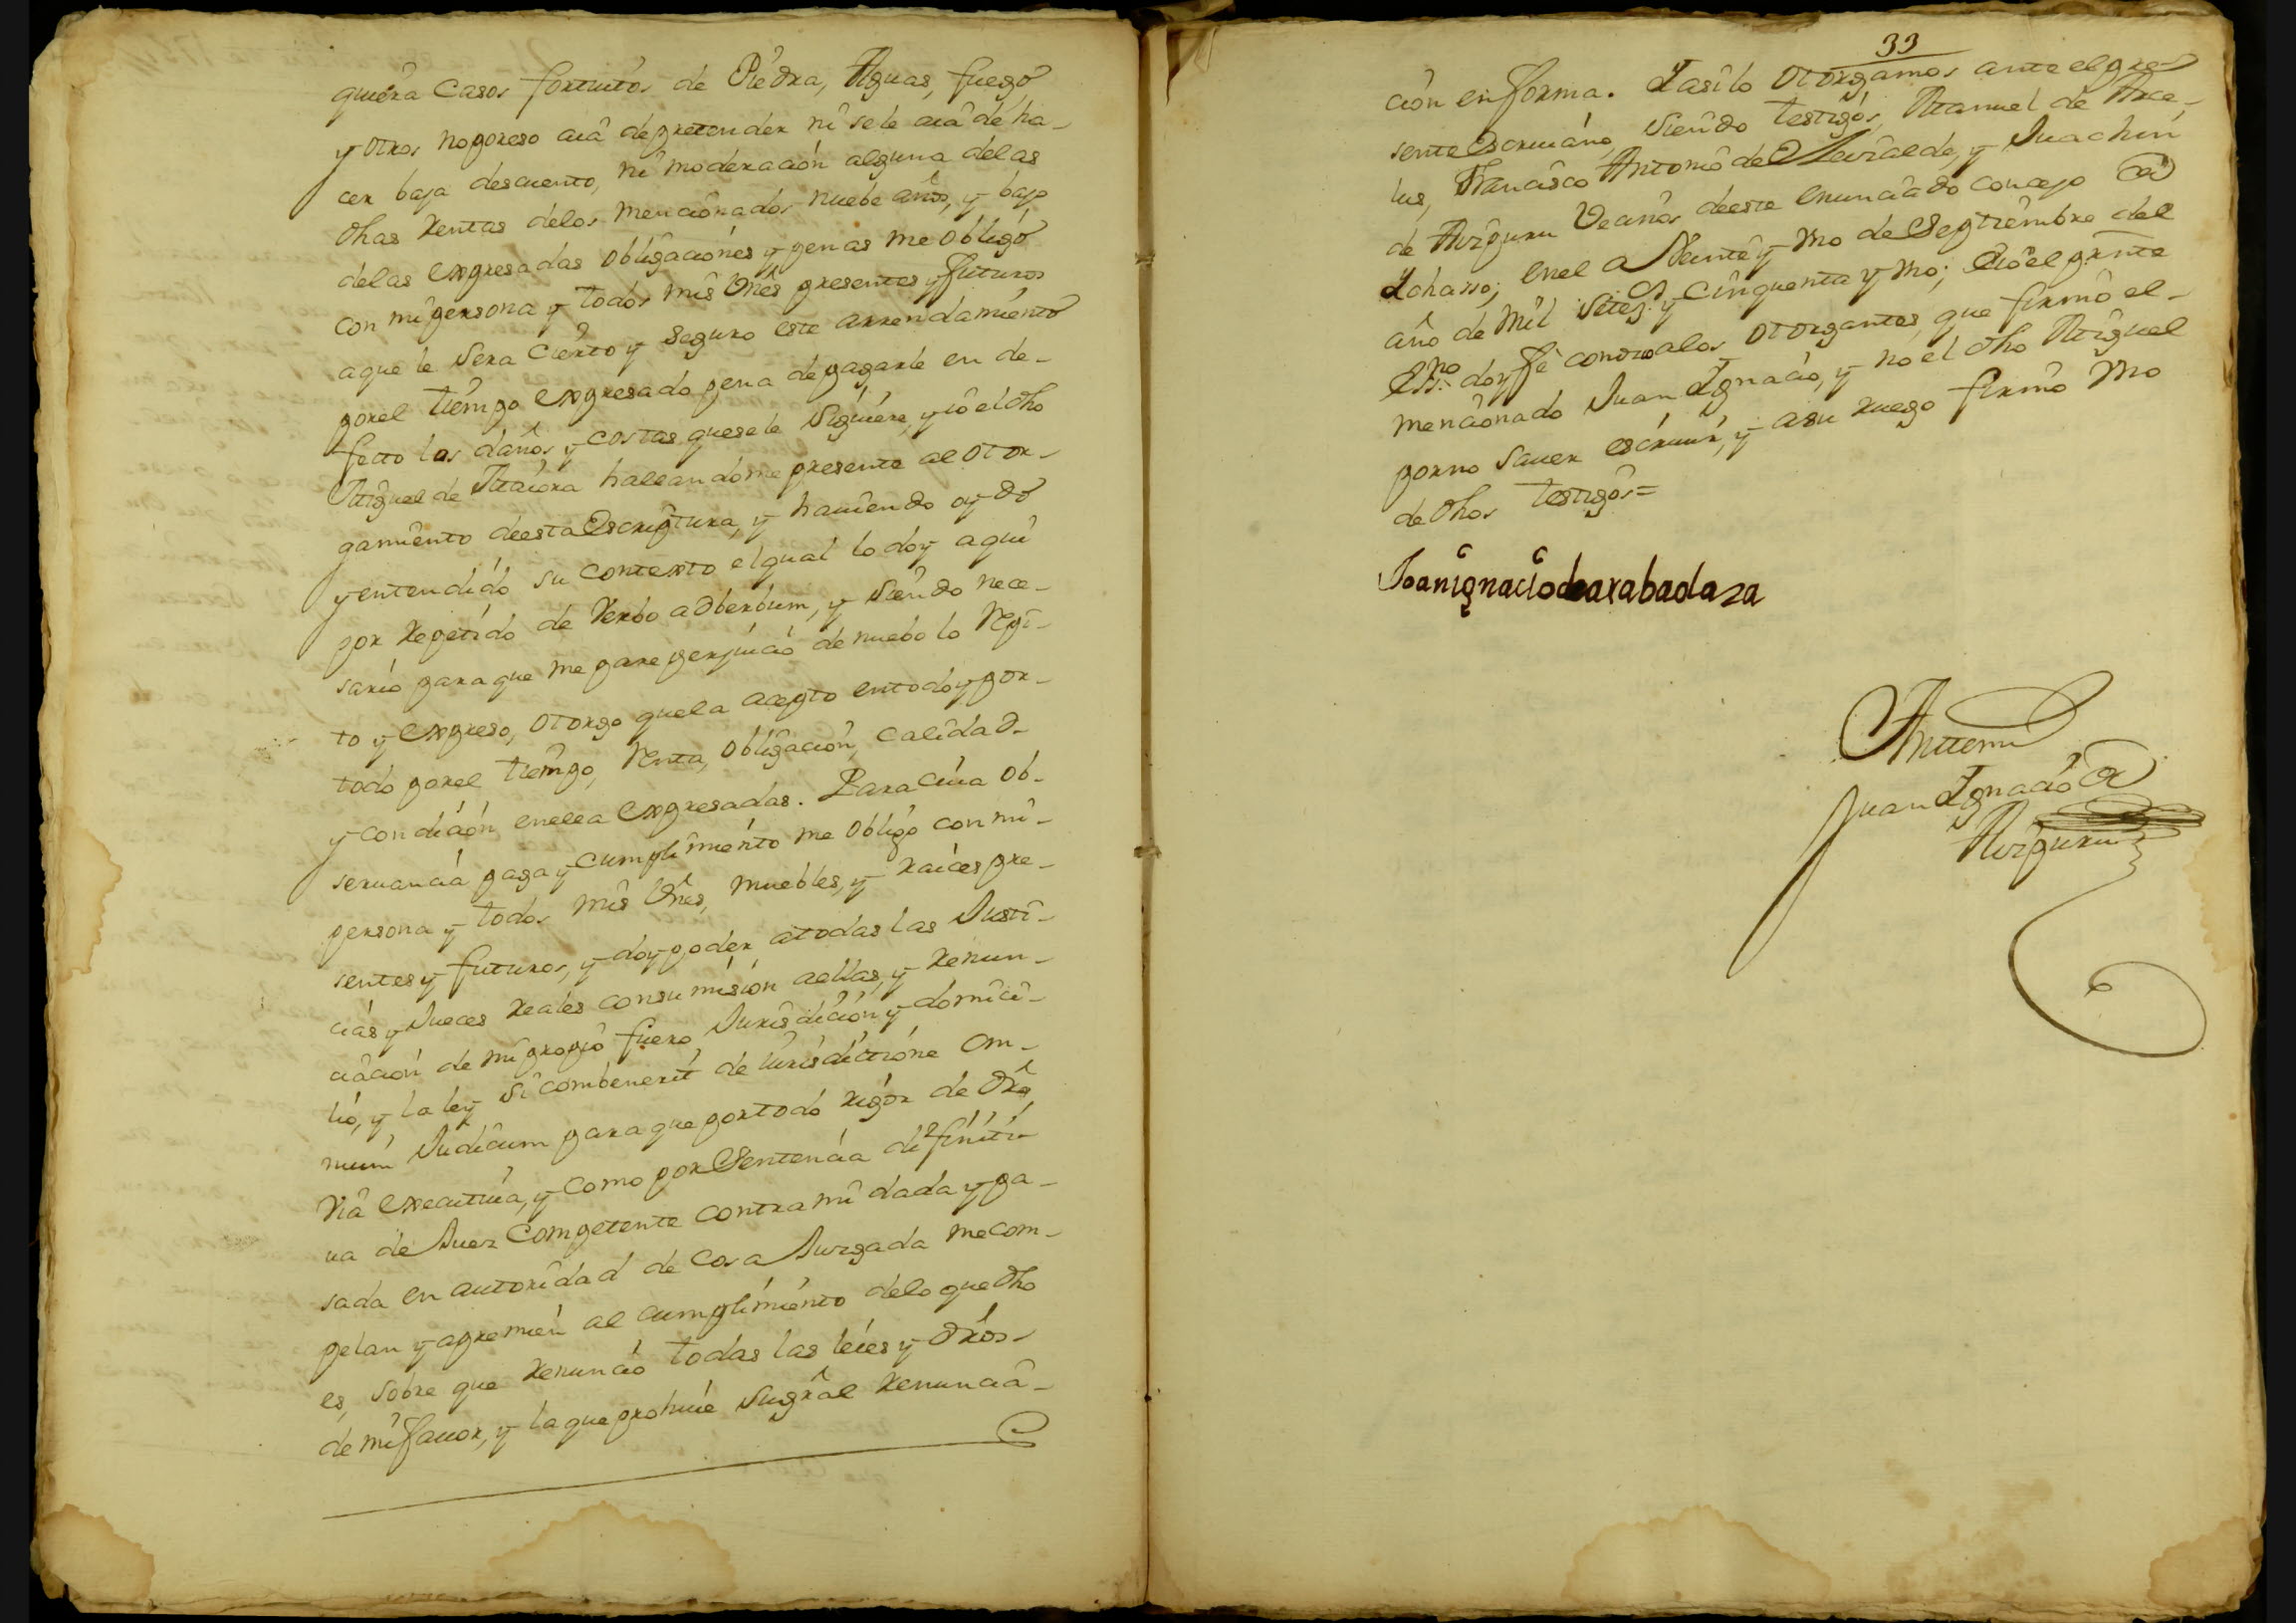 quiera Casos fortuitos de Piedra, Aguas, fuego
y otros no por eso aia de pretender ni se le aia de ha-
cer baja descuento, ni moderación alguna de las
dhas Rentas de los mencionados nuebe años, y bajo
de las expresadas obligaciones y penas me obligo
con mi persona y todos mis Vnes presentes y futuros
a que le sera cierto y seguro este arrendamiento
por el tiempo expresado pena de pagarle en de-
fecto los daños y costas que se le siguiere, y io el dho
Miguel de Maiora hallandome presente al otor-
gamiento de esta Escriptura, y haviendo oydo
y entendido su contexto el qual lo doy aqui
por Repetido de Verbo adberbum, y siendo nece-
sario para que me pare perjuicio de nuebo lo Repi-
to y expreso, otorgo que la acepto en todo y por-
todo por el tiempo, Renta, obligacion, calidad-
y condición en ella expresadas. Para cuia ob-
servancia paga y cumplimiento me obligo con mi-
persona y todos mis Vnes, muebles, y raices pre-
sentes y futuros, y doy poder a todas las Justi-
cias y Jueces Reales con sumisión a ellas, y Renun-
ciación de mi propio fuero Jurisdicion y domici-
lio, y la ley si combenerit de iurisdictione om-
nium Judicum para que por todo rigor de dro,
via executiva, y como por Sentencia difiniti-
va de Juez Competente contra mi dada y pa-
sada en autoridad de cosa Juzgada me com-
pelan y apremien al cumplimiento de lo que dho
es, sobre que Renuncio todas las leies y dros-
de mi favor, y la que prohive su gral Renuncia-
33
ción en forma. I asi lo otorgamos ante el pre-
sente Escrivano, siendo testigos, Manuel de Arce-
lus, Francisco Antonio de
de Aizpuru Vecinos de este enunciado concejo de
en el a Veinte y Vno de Septiembre del
año de Mil Setez. y Cinquenta y Vno; e io el prnte
Essno. doy fe conozco a los otorgantes, que firmó el-
mencionado Juan Ignacio, y no el dho Miguel
por no saver escrivir, y a su ruego firmó Vno
de dhos testigos=
Joanignaciodearabadaza
Anttemi
Juan Ignacio de
Aizpuru